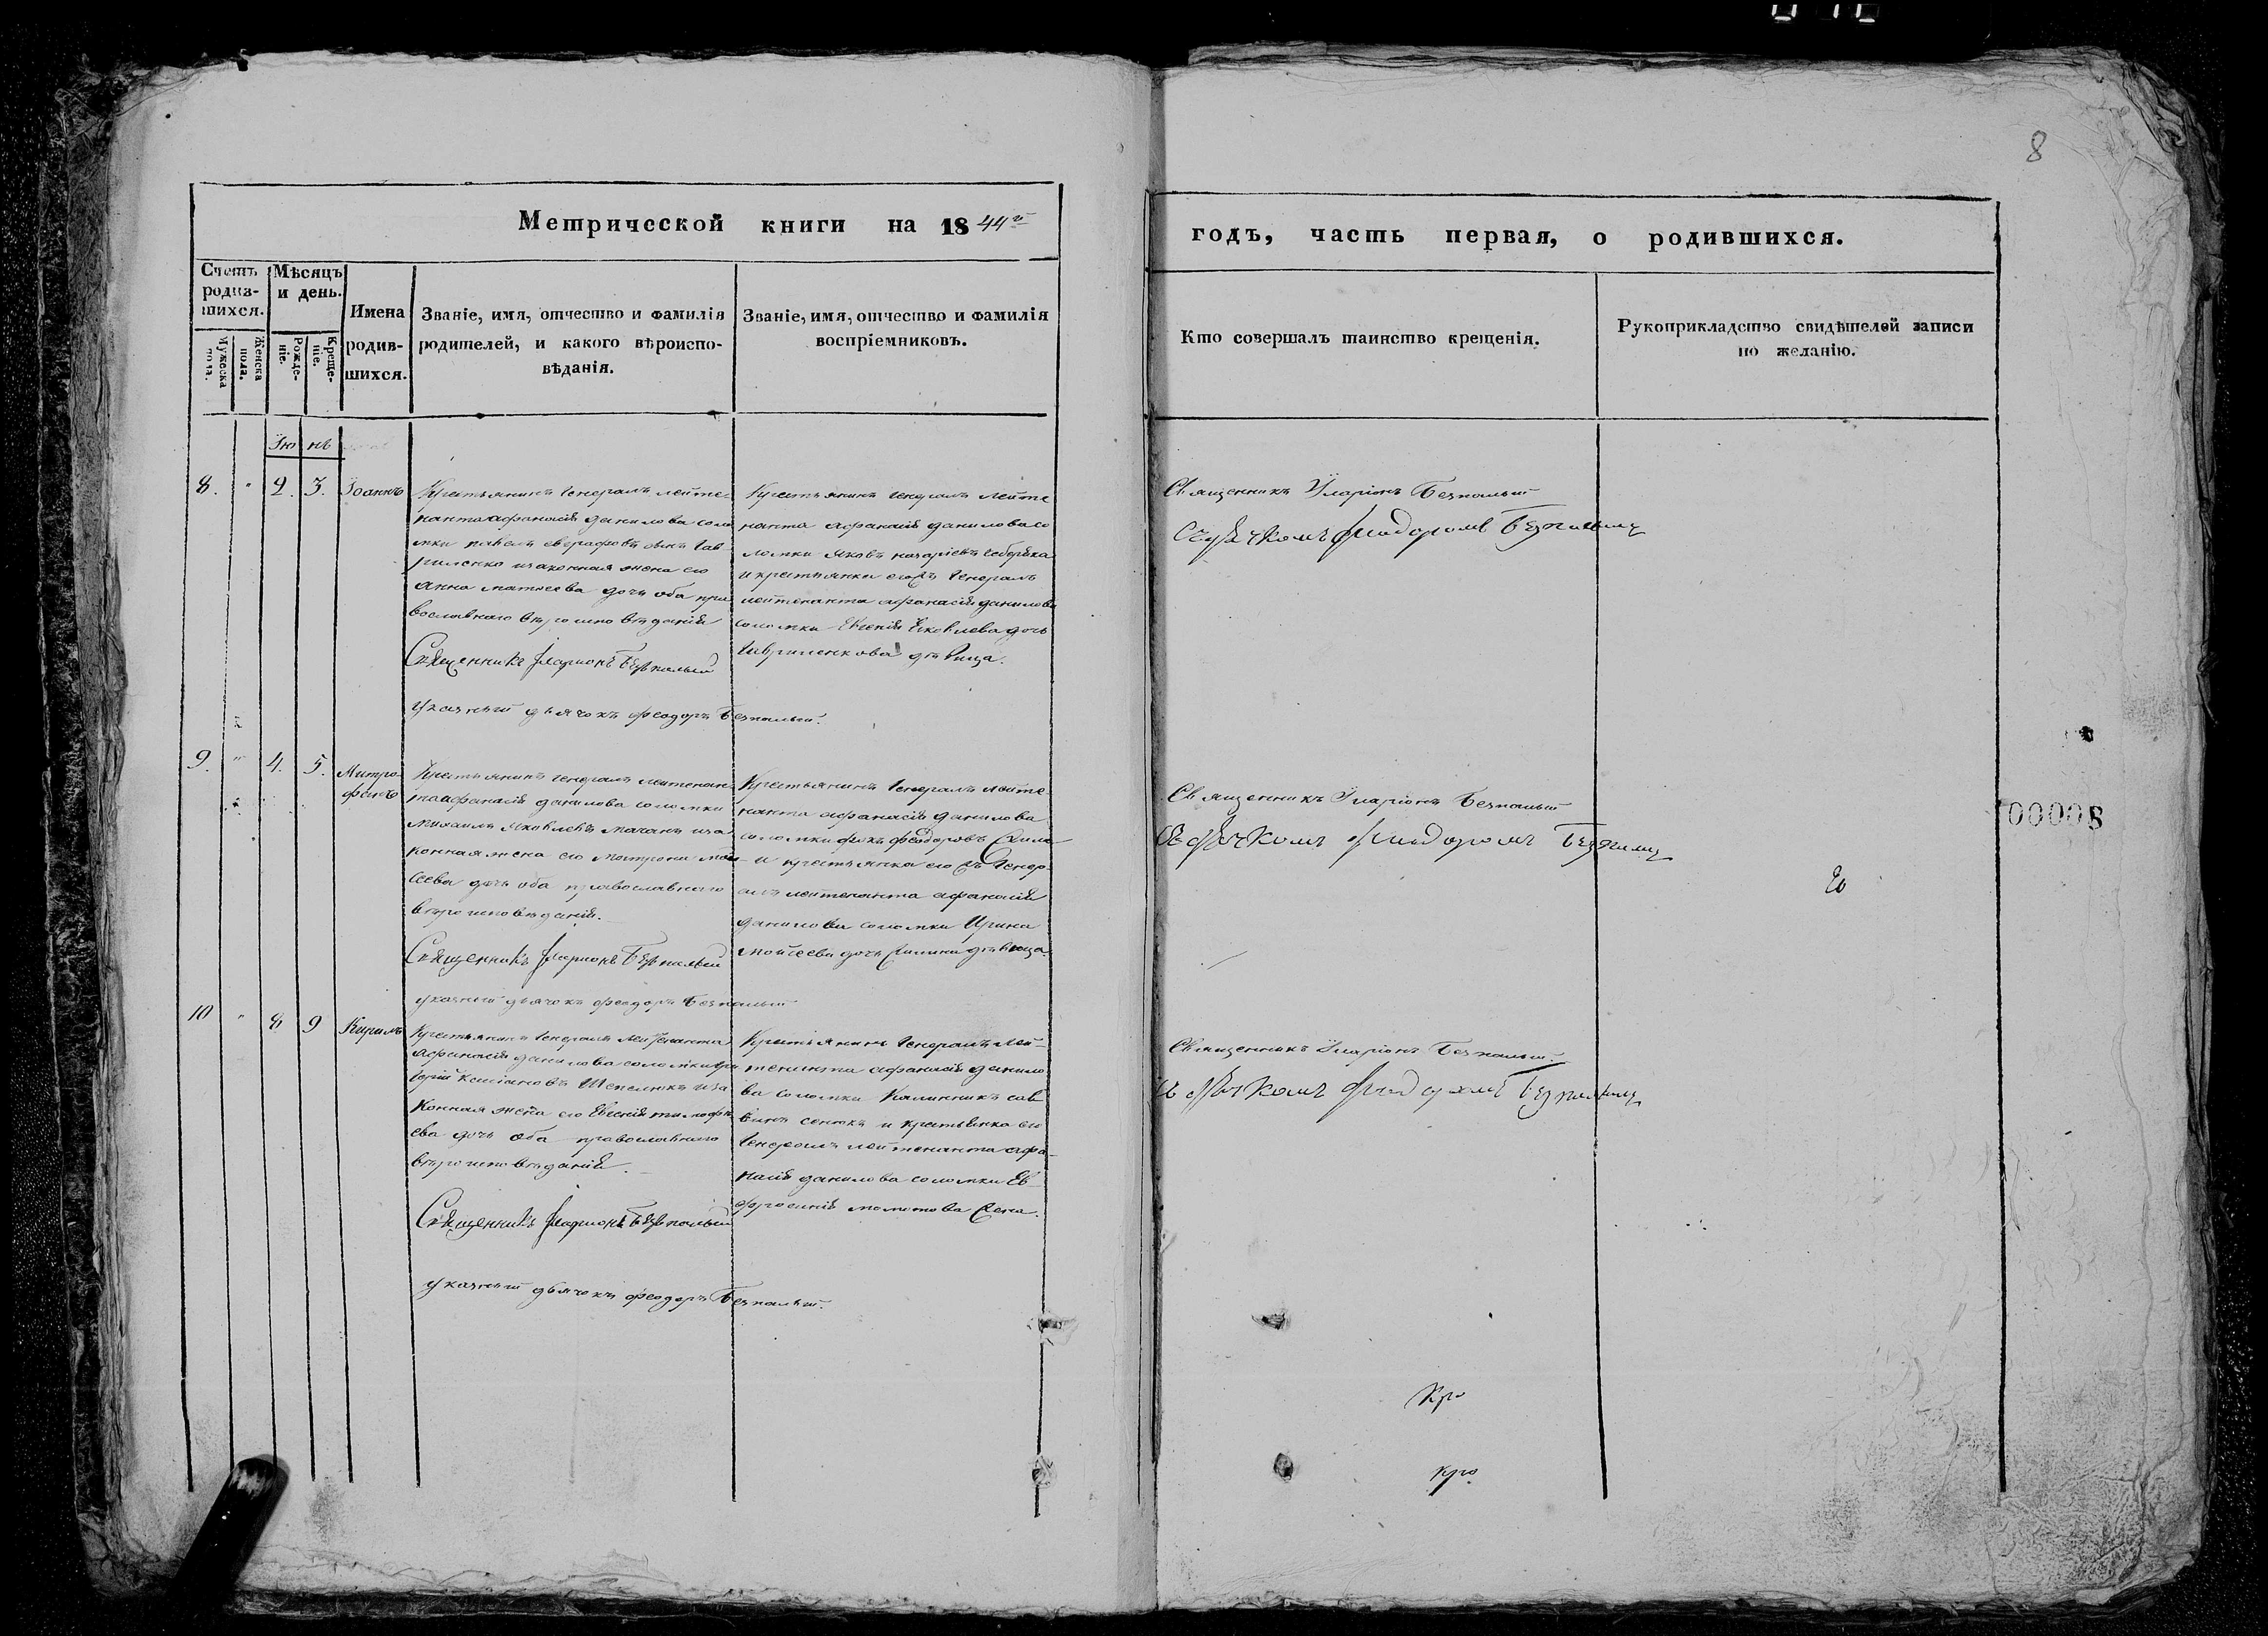 8
Метрической книги на 1844й
годъ, часть первая, о родившихся.
Счетъ родив-
шихся.
Мужеска пола.
Женска пола.
Мѣсяцъ
и день.
Рожде-
ніе.
Креще-
ніе.
Имена
родив-
шихся.
Званіе, имя, отчество и фамилія
родителей, и какого вѣроиспо-
вѣданія.
Званіе, имя, отчество и фамилія
воспріемниковъ.
Кто совершалъ таинство крещенія.
Рукоприкладство свидѣтелей записи
по желанію.
Iю нь
8. " 2. 3. Iоаннъ
Крестьянинъ Генералъ лейте-
нанта афанасія данилова соло
мки павелъ сынъ Гав
риленко изаконная жена его
анна матвеева дочь оба пра
вославнаго вѣроисповѣданія
Священникъ Иларионъ Безпалый
указный дьячокъ феодоръ Безпалый.
Крестьянинъ генералъ лейте
нанта афанасія данилова со
ломки яковъ
и крестьянки его Генералъ
лейтенанта афанасія данилова
соломки Евгенія Яковлева дочь
Гавриленкова дѣвица.
Священникъ Иларіонъ Безпалый
съ дьячкомъ Феодоромъ Безпалымъ
9. " 4. 5. Митро-
фанъ
Крестьянинъ генералъ лейтенан-
та афанасія данилова соломки
Михаилъ Яковлевъ иза
конная жена его матрона мои
сеева дочь оба православнаго
вѣроисповѣданія.
Священникъ Иларионъ Безпалый
указный дьячокъ феодоръ Безпалый
Крестьянинъ Генералъ лейте-
нанта афанасія данилова
соломки феодоровъ
и крестьянка его Генер
алъ лейтенанта афанасія
данилова соломки Ирина
Мойсеева дочь дѣвица.
Священникъ Иларіонъ Безпалый
съ дьячкомъ Феодоромъ Безпалымъ
00008
10 " 8 9 Кирилъ
Крестьянинъ Генералъ лейтенанта
афанасія данилова соломки
иза
конная жена его Евгенія тимофѣ
ева дочь оба православнаго
вѣроисповѣданія.
Священникъ Иларионъ Безпалый
указный дьячокъ феодоръ Безпалый.
Крестьянинъ Генералъ лей-
тенанта афанасія данило
ва соломки Калинникъ сав
винъ сенюкъ и крестьянка его
Генералъ лейтенанта афа-
насія данилова соломки Ев
фросинія
Священникъ Иларіонъ Безпалый.
съ дьячкомъ Феодоромъ Безпалымъ
Кро
кро